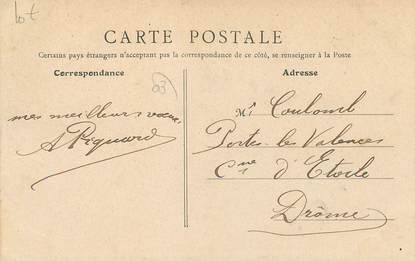 Lot
CARTE POSTALE
Certains pays étrangers n'acceptant pas la correspondance de ce côté, se renseigner à la Poste
Correspondance
83
Adresse
mes meilleurs vœux
A Piquard
Mr Coulomb
Portes-les Valences
Cne d'Etoile
Drôme